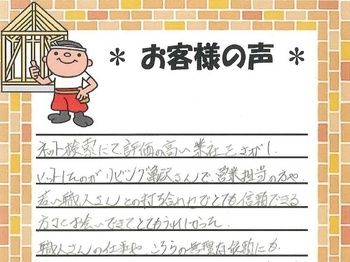 * お客様の声 *
ネット検索にて評価の高い業社をさがし、
ヒットしたのがリビング亀沢さんで、営業担当の方や
若い職人さんとの打ち合わせでとても信頼できる
方にお会いできてとてもうれしかった。
職人さんの仕事や、こちらの無理な依頼にも